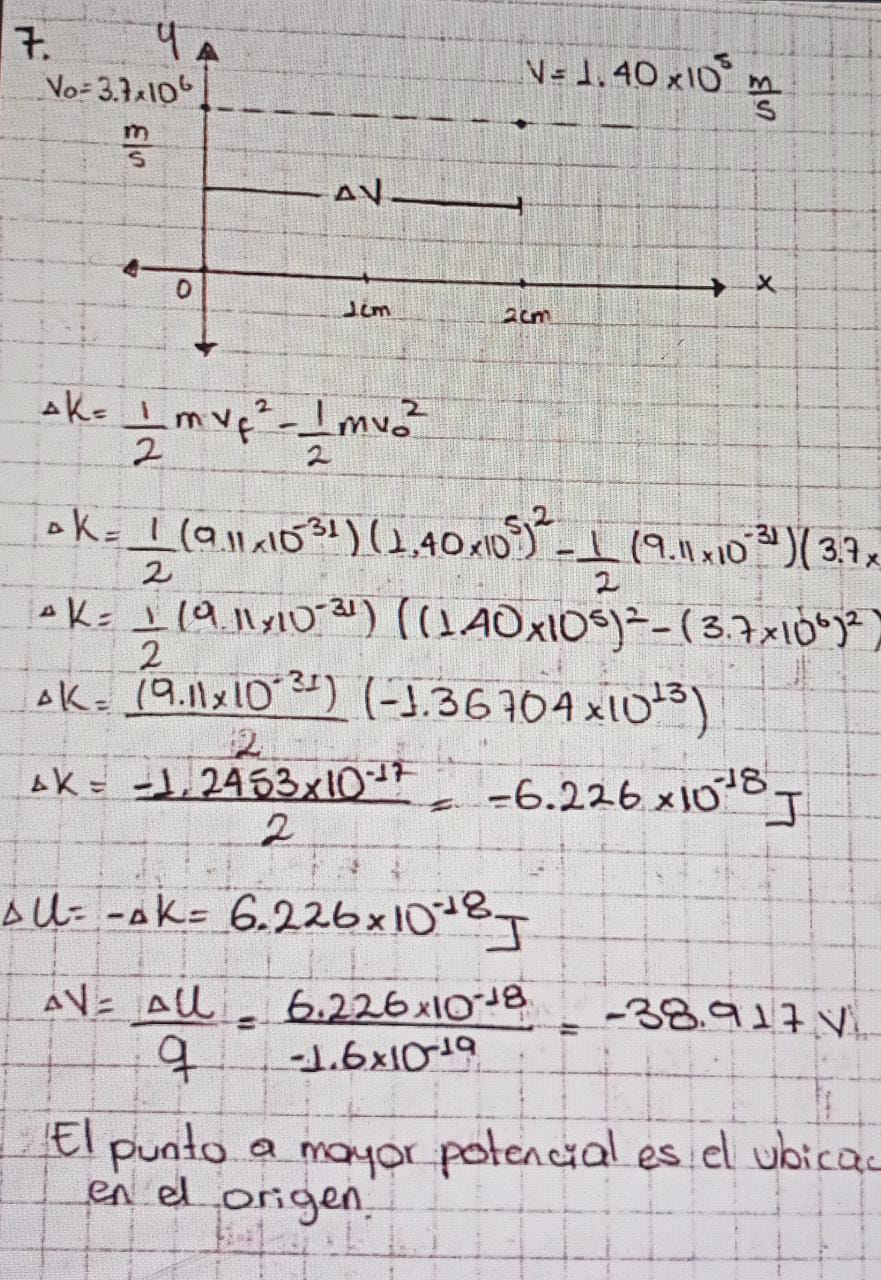 7. y
V₀=3.7x10⁶ m/s
V=1.40x10⁵ m/s
ΔV
0 1cm 2cm x
ΔK= 1/2 mv_f² - 1/2 mv₀²
ΔK= 1/2 (9.11x10⁻³¹)(1,40x10⁵)² - 1/2 (9.11x10⁻³¹)(3.7x
ΔK= 1/2 (9.11x10⁻³¹) ((1.40x10⁵)² - (3.7x10⁶)²)
ΔK= (9.11x10⁻³¹)/2 (-1.36704x10¹³)
ΔK= -1,2453x10⁻¹⁷/2 = -6.226x10⁻¹⁸ J
ΔU= -ΔK= 6.226x10⁻¹⁸ J
ΔV= ΔU/q = 6.226x10⁻¹⁸/-1.6x10⁻¹⁹ = -38.917 V
El punto a mayor potencial es el ubicac
en el origen.